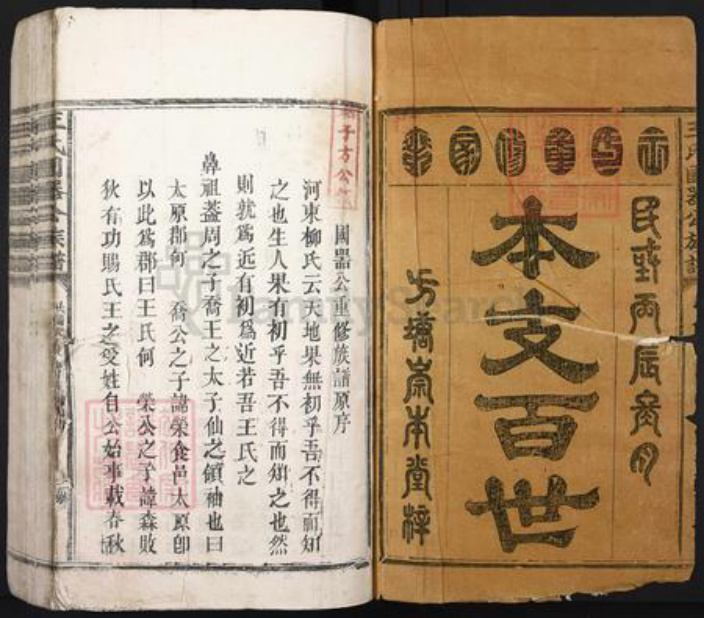 民國丙辰冬月
本支百世
方塘崇本堂梓
國器公重修族譜原序
河東柳氏云天地果無初乎吾不得而知
之也生人果有初乎吾不得而知之也然
則孰爲近有初爲近若吾王氏之
鼻祖蓋周之子喬王之太子仙之領袖也曰
太原郡何 喬公之子諱榮食邑太原卽
以此爲郡曰王氏何 榮公之子諱森敗
狄有功賜氏王之受姓自公始事載春秋
子方公
王氏國器公族譜
FamilySearch